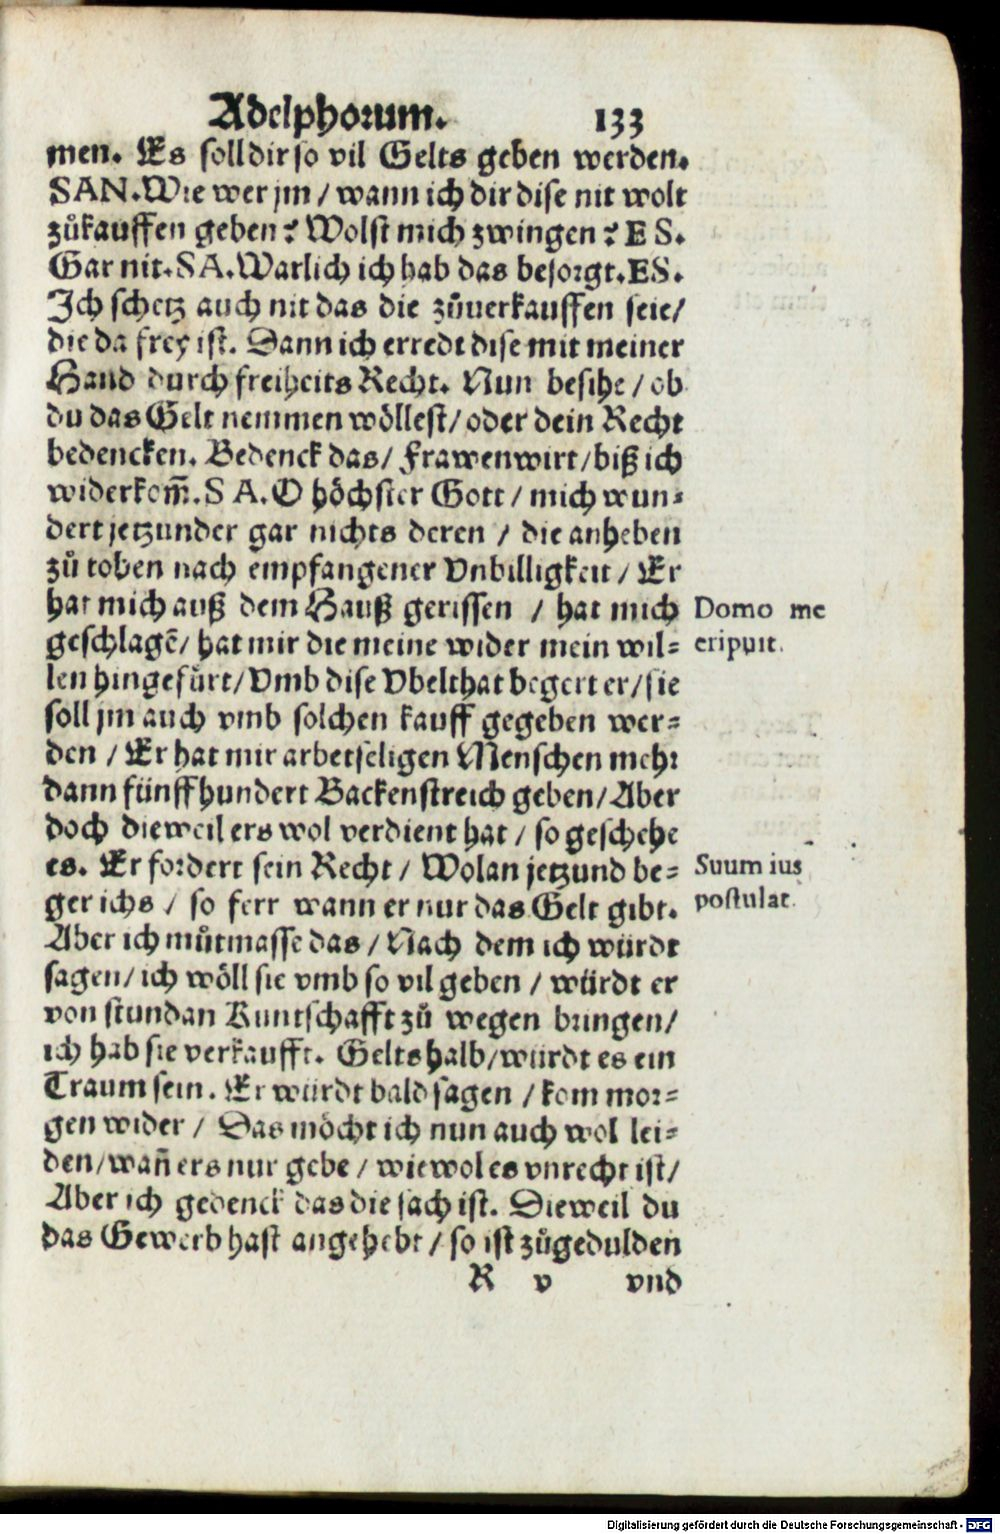 Adelphorum. 133
men. Es soll dir so vil Gelts geben werden.
SAN. Wie wer jm / wann ich dir dise nit wolt
zůkauffen geben? Wolst mich zwingen? ES.
Gar nit. SA. Warlich ich hab das besorgt. ES.
Ich schetz auch nit das die zůuerkauffen seie/
die da frey ist. Dann ich erredt dise mit meiner
Hand durch freiheits Recht. Nun besihe / ob
du das Gelt nemmen wöllest/ oder dein Recht
bedencken. Bedenck das/ Frawenwirt/ biß ich
widerkom̃. SA. O höchster Gott / mich wun⸗
dert jetzunder gar nichts deren / die anheben
zů toben nach empfangener Vnbilligkeit / Er
hat mich auß dem Hauß gerissen / hat mich
Domo me
geschlagẽ/ hat mir die meine wider mein wil⸗
eripuit.
len hingefůrt/ Vmb dise Vbelthat begert er/ sie
soll jm auch vmb solchen kauff gegeben wer⸗
den / Er hat mir arbetseligen Menschen mehr
dann fünffhundert Backenstreich geben/ Aber
doch dieweil ers wol verdient hat / so geschehe
es. Er fordert sein Recht / Wolan jetzund be⸗
Suum ius
ger ichs / so ferr wann er nur das Gelt gibt.
postulat.
Aber ich můtmasse das / Nach dem ich würdt
sagen/ ich wöll sie vmb so vil geben / würdt er
von stundan Kuntschafft zů wegen bringen/
ich hab sie verkaufft. Gelts halb/ würdt es ein
Traum sein. Er würdt bald sagen / kom mor⸗
gen wider / Das möcht ich nun auch wol lei⸗
den/ wañ ers nur gebe / wiewol es vnrecht ist/
Aber ich gedenck das die sach ist. Dieweil du
das Gewerb hast angehebt / so ist zůgedulden
R v vnd
Digitalisierung gefördert durch die Deutsche Forschungsgemeinschaft - DFG